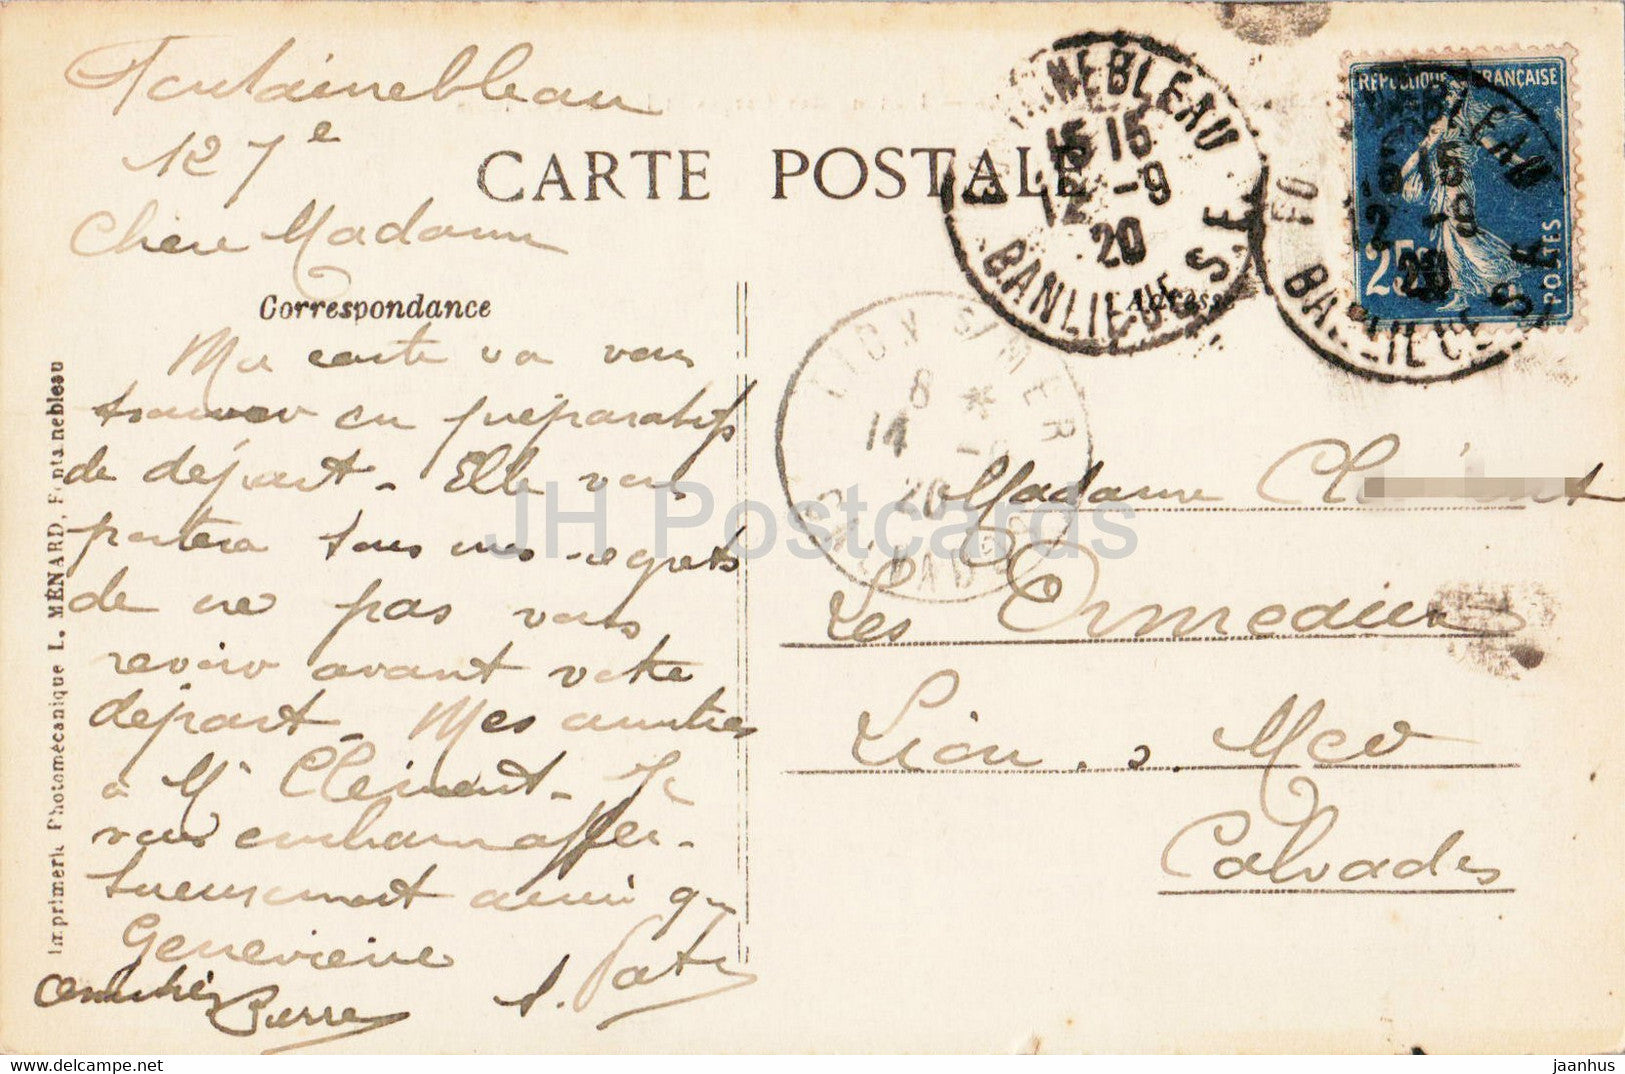 Fontainebleau
12 7e
CARTE POSTALE
Chère Madame
Correspondance
Adresse
Ma carte va vous
trouver en préparatifs
de départ. Elle vous
portera tous mes regrets
de ne pas vous
revoir avant votre
départ. Mes amitiés
à Mr Clément. Je
vous embrasse affec-
tueusement ainsi que
Geneviève
Pierre
Madame Cl
Les Ormeaux
Lion. s. Mer
Calvados
Imprimerie Photomécanique L. MÉNARD, Fontainebleau
RÉPUBLIQUE FRANÇAISE
25c
POSTES
FONTAINEBLEAU
15 15
12 -9
20
BANLIEUE
S. ET
NEBLEAU
15 15
12 -9
20
BANLIEUE
LION S/MER
8 *
14 -
20
CALVADOS
JH Postcards
https://www.delcampe.net
jaanhus